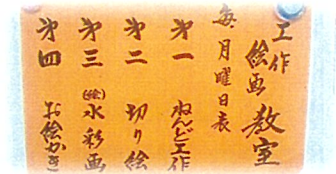 工作
絵画 教室
毎月曜日表
第一 ねんど工作
第二 切り絵
第三 (絵)水彩画
第四 お絵かき